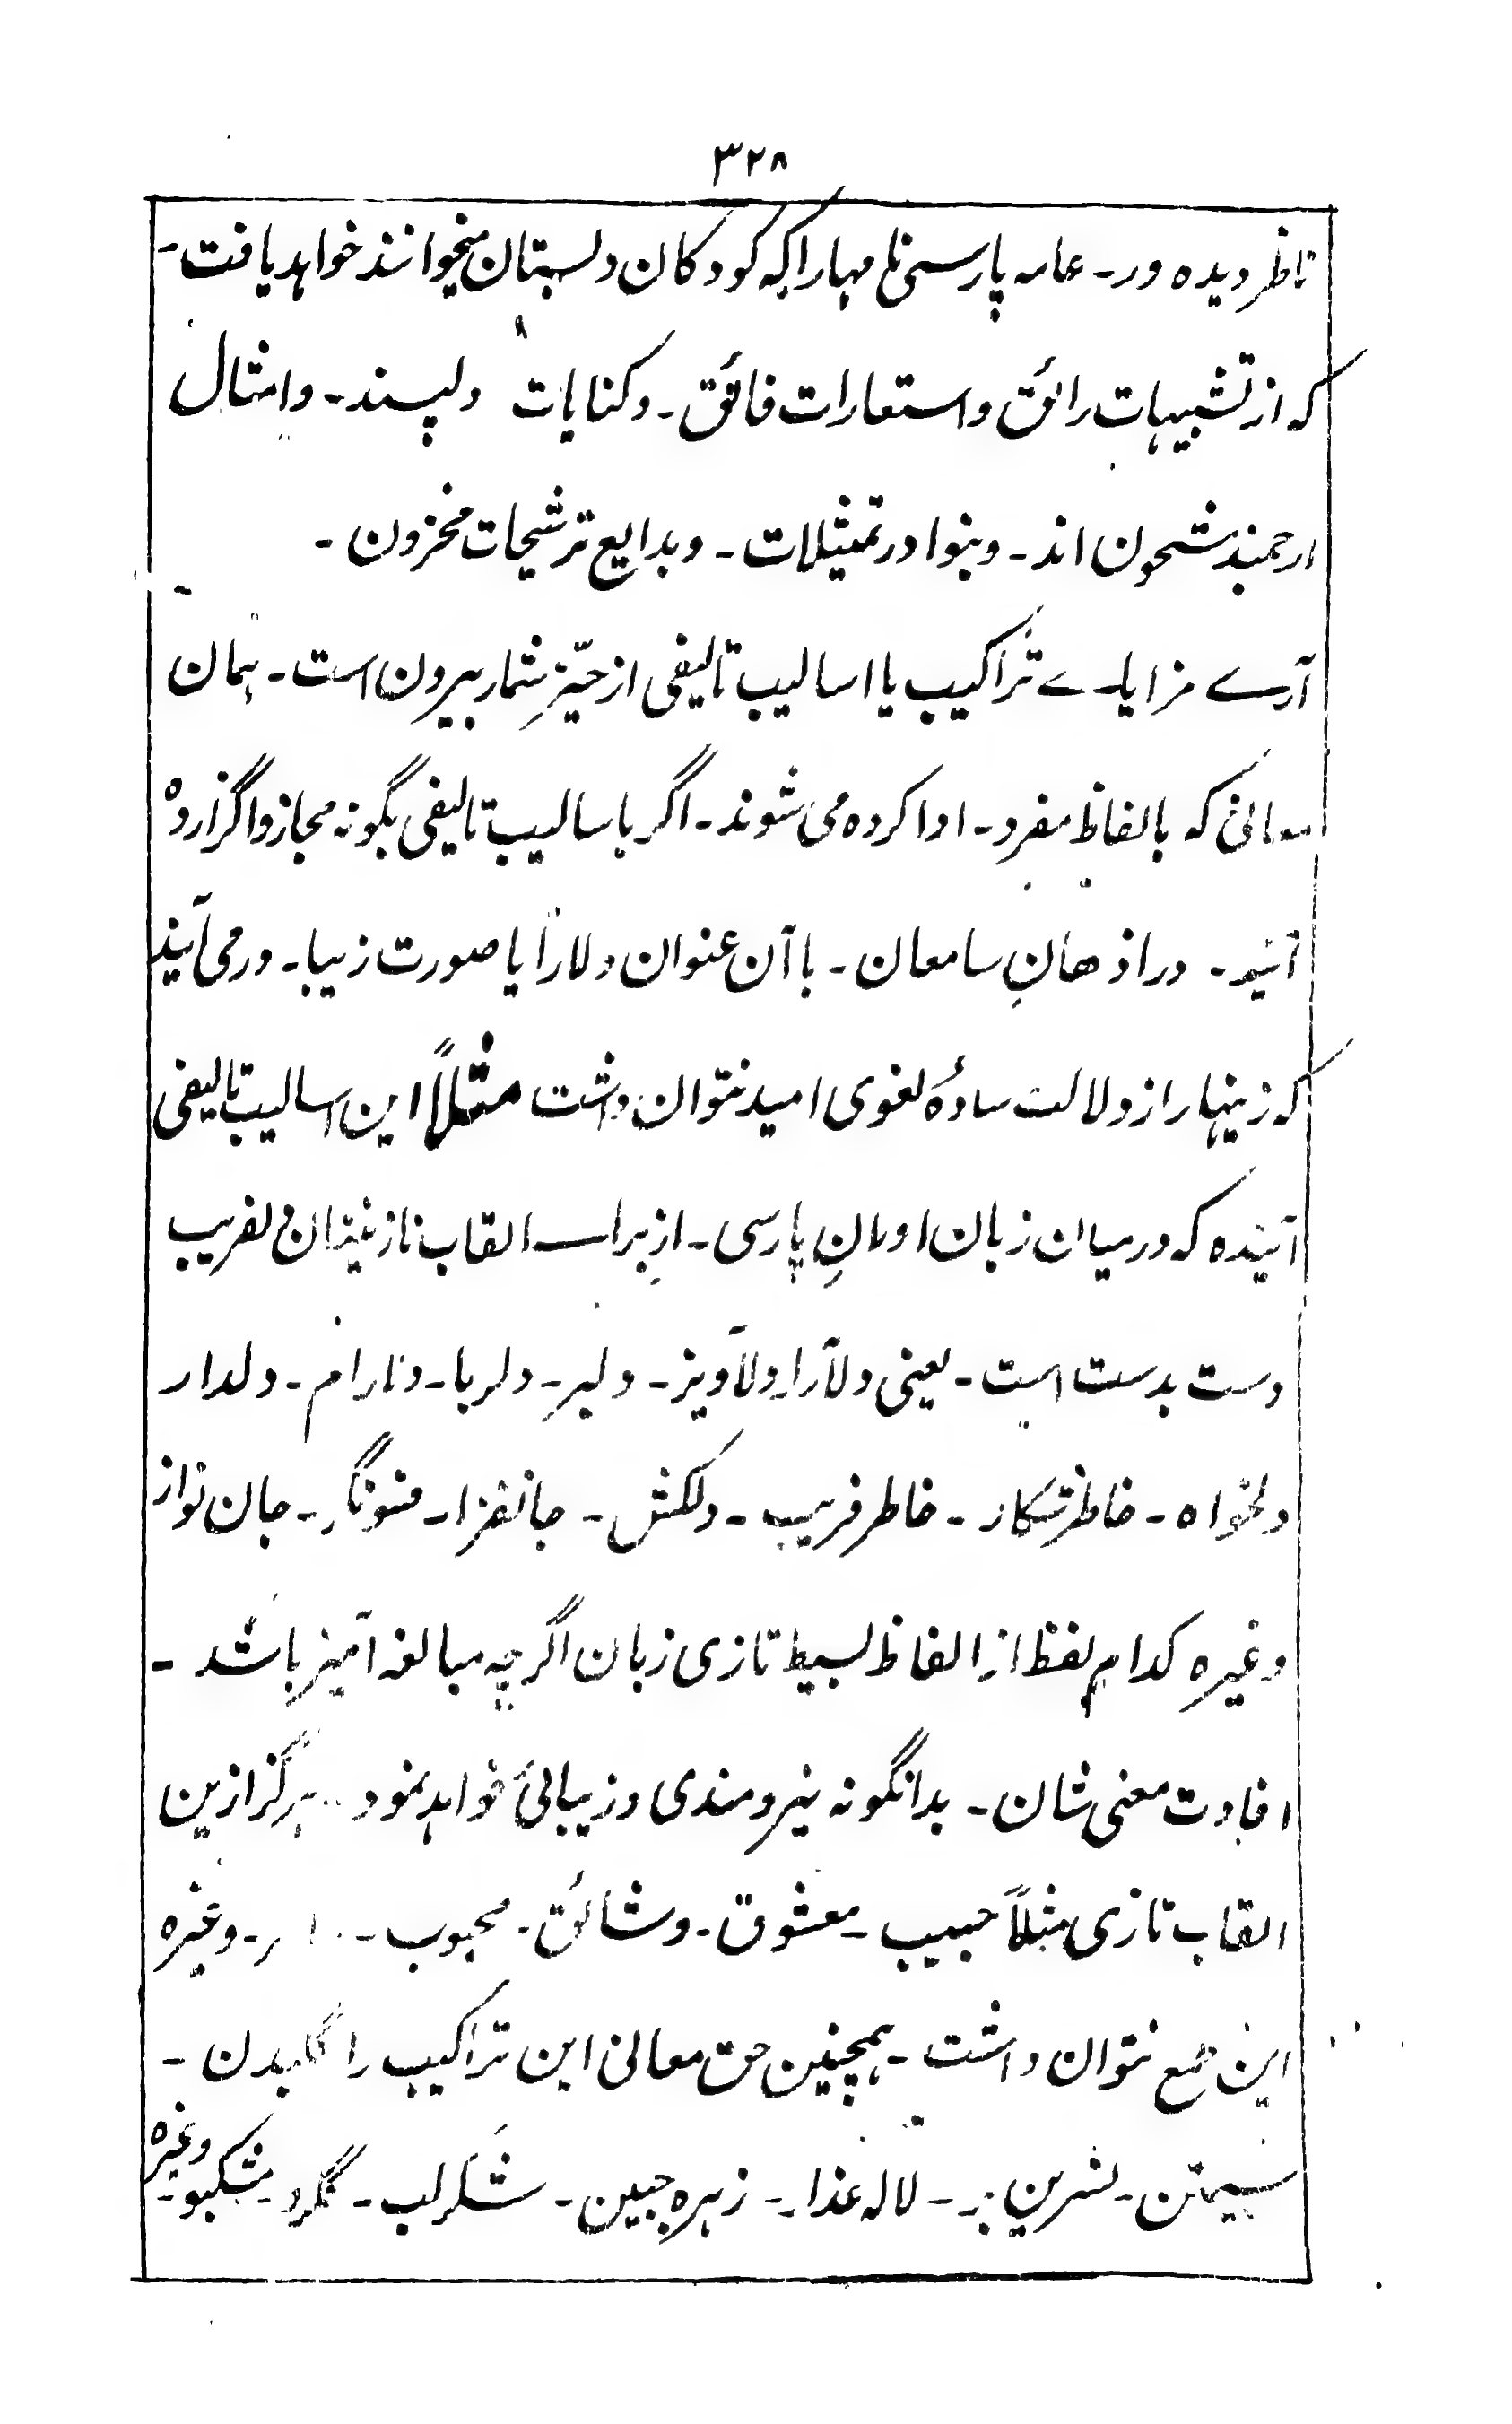 ۳۲۸
ناظر دیده ور۔ عامه پارسی نامهارا که کودکان دبستان میخوانند خواهد یافت۔
که از تشبیهات رائق و استعارات فائق۔ و کنایات دلپسند۔ و امثال
ارجمند مشحون اند۔ و بنوادر تمثیلات۔ و بدایع ترشیحات مخزون۔
آرے مزایاے تراکیب یا اسالیب تالیفی از حیّزِ شمار بیرون است۔ همان
معانی که بالفاظ مفرد۔ ادا کرده می شوند۔ اگر باسالیب تالیفی بگونه مجاز واگزارده
آیند۔ در اذهانِ سامعان۔ با آن عنوان دلارا یا صورت زیبا۔ در می آیند
که زینهار از دلالت سادهٔ لغوی امید نتوان داشت مثلاً این اسالیب تالیفی
آینده که در میان زبان اوران پارسی۔ از براے القاب نازنینان دلفریب
دست بدست است۔ یعنی دلآرا۔ دلآویز۔ دلبر۔ دلربا۔ دلارام۔ دلدار
دلخواه۔ خاطر شکار۔ خاطر فریب۔ دلکش۔ جانفزا۔ فسونگر۔ جان نواز
وغیره کدام لفظ از الفاظ بسیط تازی زبان اگرچه مبالغه آمیز باشد۔
افادت معنی شان۔ بدانگونه نیرومندی و زیبائی خواهد نمود۔ هرگز ازین
القاب تازی مثلاً حبیب۔ معشوق۔ و شائق۔ محبوب۔ وغیره
این طمع نتوان داشت۔ همچنین حق معانی این تراکیب را
سیمتن۔ نسرین بر۔ لاله عذار۔ زهره جبین۔ شکر لب۔ گلرو۔ مشکبو۔ وغیره